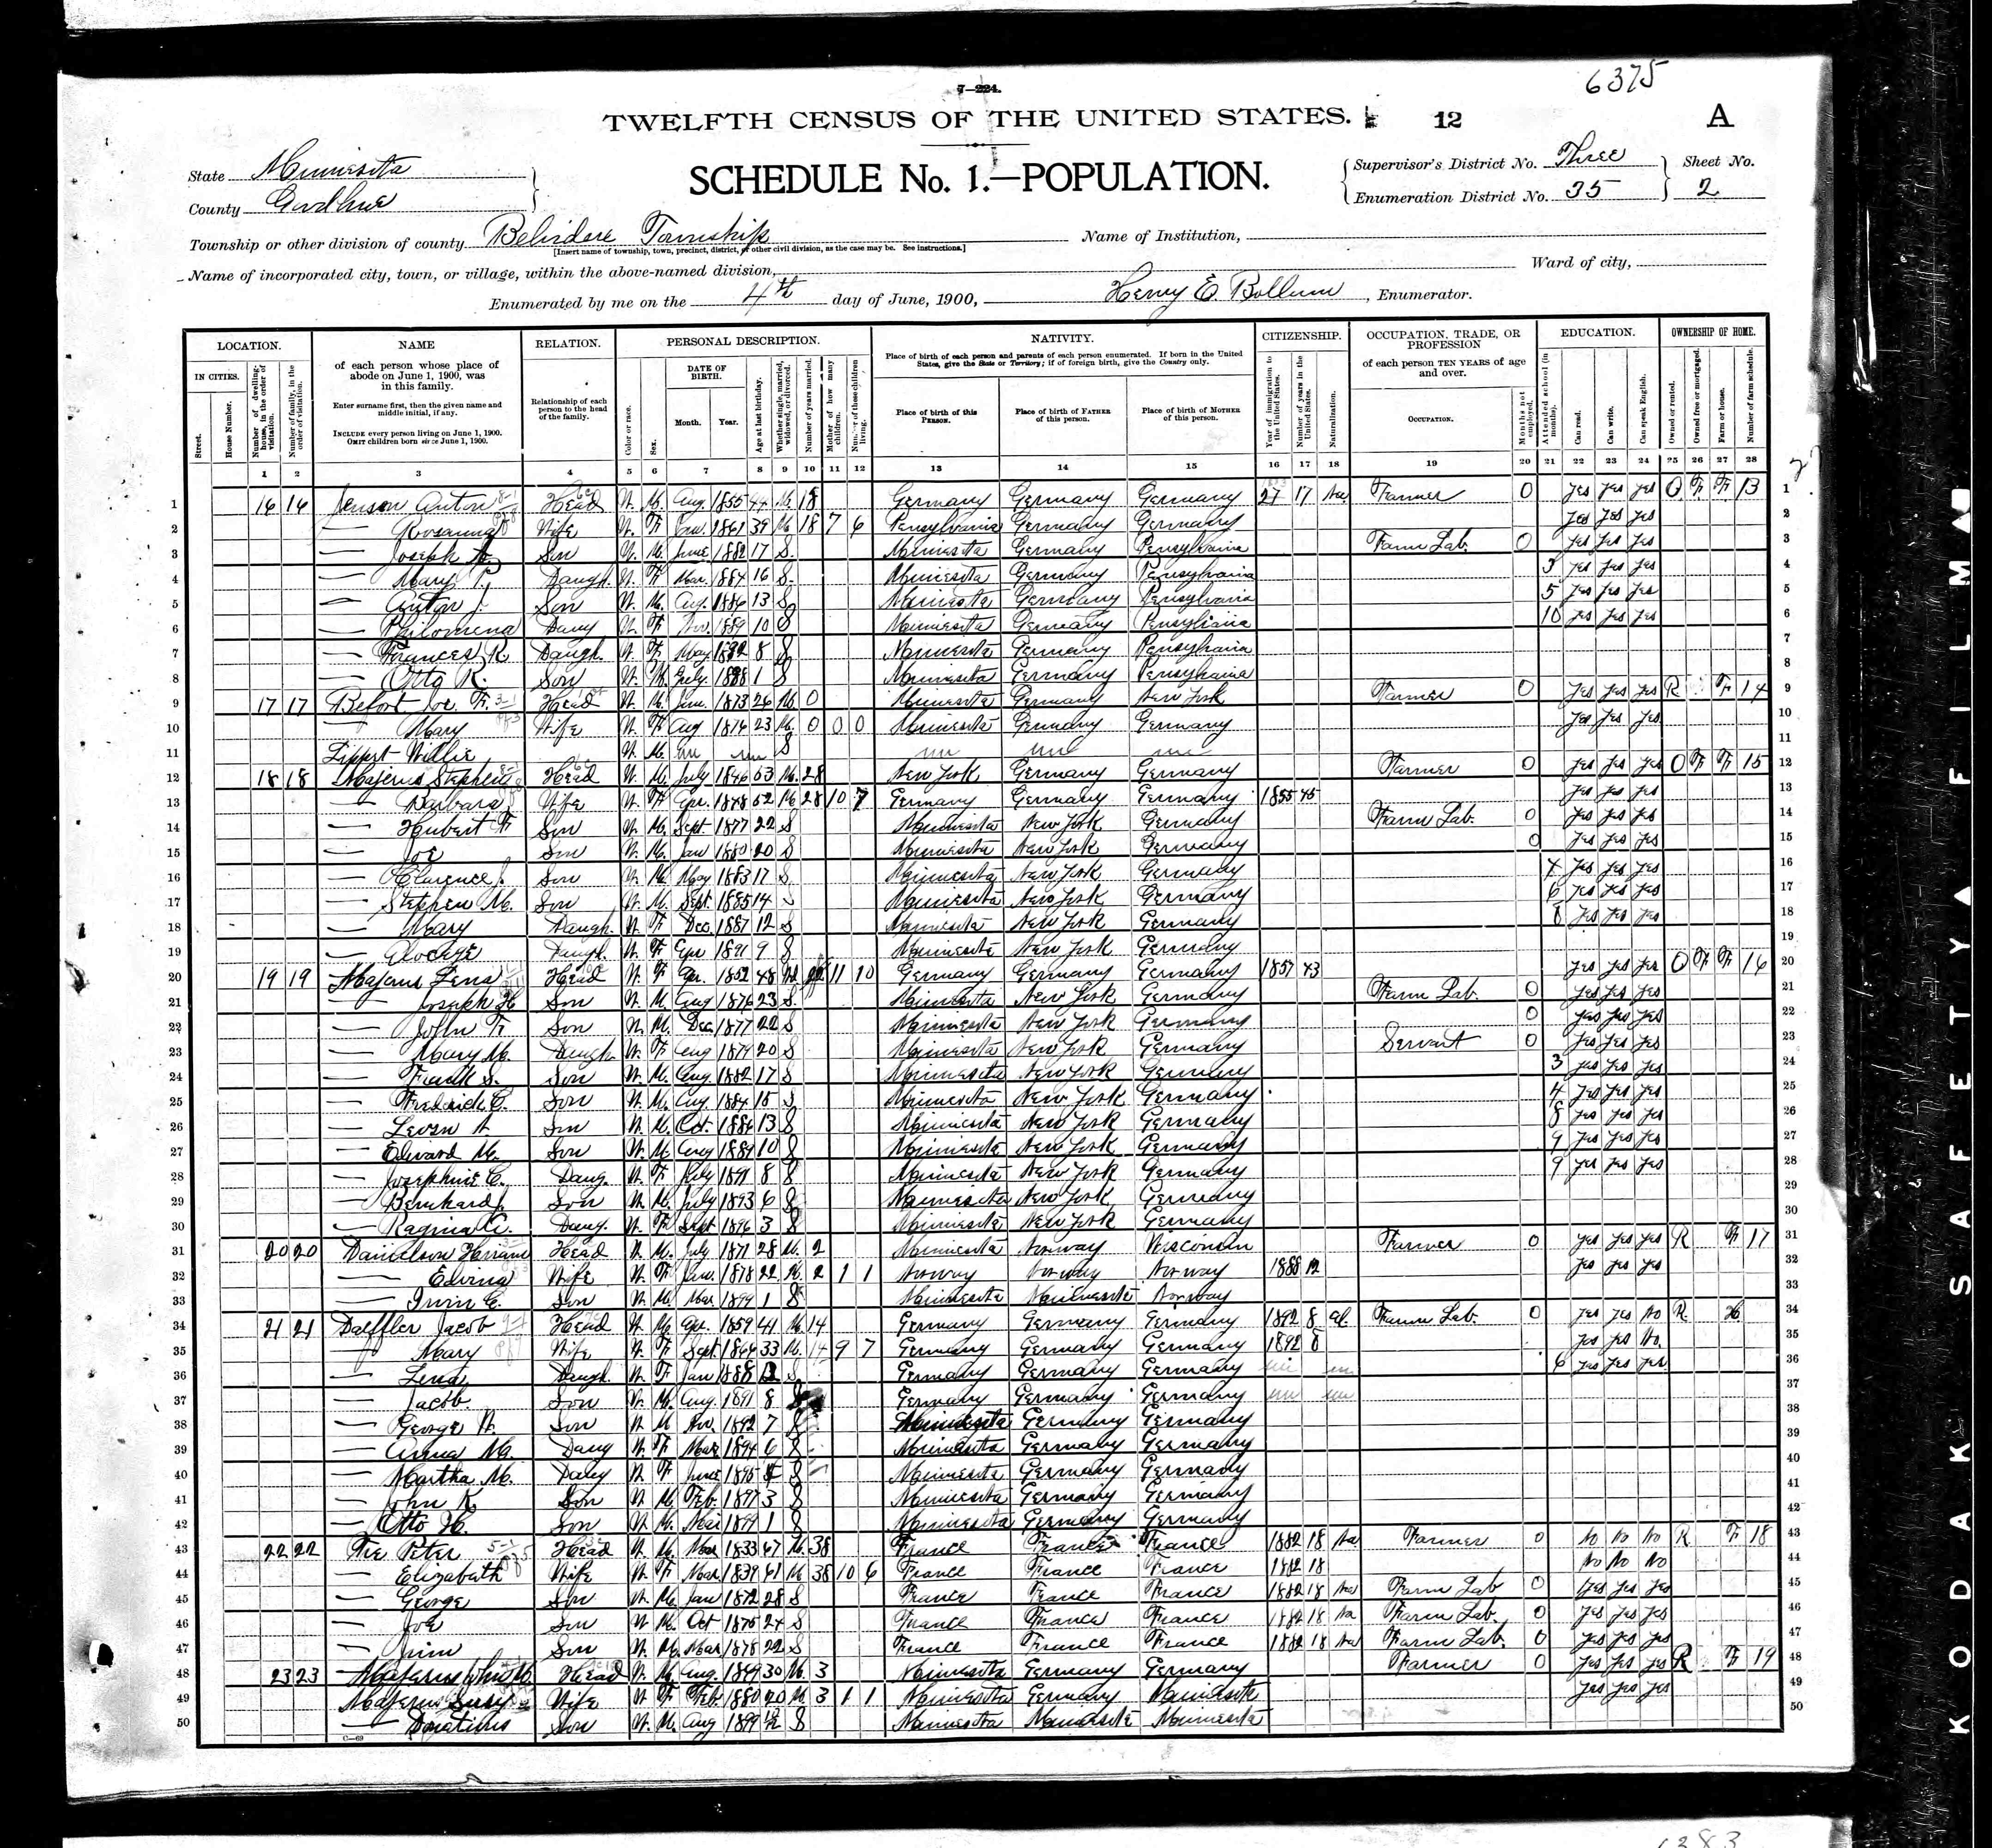 6375
7—224.
TWELFTH CENSUS OF THE UNITED STATES. 12 A
State Minnesota
County Goodhue
SCHEDULE No. 1.—POPULATION.
Supervisor's District No. Three Sheet No.
Enumeration District No. 35 2
Township or other division of county Belvidere Township Name of Institution,
[Insert name of township, town, precinct, district, or other civil division, as the case may be. See instructions.]
Name of incorporated city, town, or village, within the above-named division, Ward of city,
Enumerated by me on the 4th day of June, 1900, Henry E. Bollum, Enumerator.
LOCATION. NAME RELATION. PERSONAL DESCRIPTION. NATIVITY. CITIZENSHIP. OCCUPATION, TRADE, OR PROFESSION EDUCATION. OWNERSHIP OF HOME.
IN CITIES. Street. House Number. Number of dwelling-house, in the order of visitation. Number of family, in the order of visitation.
of each person whose place of abode on June 1, 1900, was in this family.
Enter surname first, then the given name and middle initial, if any.
INCLUDE every person living on June 1, 1900. OMIT children born since June 1, 1900.
Relationship of each person to the head of the family.
Color or race. Sex. DATE OF BIRTH. Month. Year. Age at last birthday. Whether single, married, widowed, or divorced. Number of years married. Mother of how many children. Number of these children living.
Place of birth of each person and parents of each person enumerated. If born in the United States, give the State or Territory; if of foreign birth, give the Country only.
Place of birth of this PERSON. Place of birth of FATHER of this person. Place of birth of MOTHER of this person.
Year of immigration to the United States. Number of years in the United States. Naturalization.
of each person TEN YEARS of age and over.
OCCUPATION. Months not employed.
Attended school (in months). Can read. Can write. Can speak English.
Owned or rented. Owned free or mortgaged. Farm or house. Number of farm schedule.
1 2 3 4 5 6 7 8 9 10 11 12 13 14 15 16 17 18 19 20 21 22 23 24 25 26 27 28
1 16 16 Jenson Anton Head W. M. Aug. 1855 44 M. 18 Germany Germany Germany 17 Na Farmer 0 yes yes yes O F F 13 1
2 — Rosanna Wife W. F Jan. 1861 39 M 18 7 6 Pensylvania Germany Germany yes yes yes 2
3 — Joseph Son W. M. June 1882 17 S. Minnesota Germany Pensylvania Farm Lab. 0 yes yes yes 3
4 — Mary Daugh. W. F Mar. 1884 16 S. Minnesota Germany Pensylvania 3 yes yes yes 4
5 — Anton J. Son W. M. Aug. 1886 13 S Minnesota Germany Pensylvania 5 yes yes yes 5
6 — Philomena Daug W. F Nov. 1889 10 S Minnesota Germany Pensylvania 10 yes yes yes 6
7 — Frances K Daugh. W. F May 1892 8 S Minnesota Germany Pensylvania 7
8 — Otto R. Son W. M. July 1898 1 S Minnesota Germany Pensylvania 8
9 17 17 Befort Joe F. Head W. M. June. 1873 26 M. 0 Minnesota Germany New York Farmer 0 yes yes yes R F 14 9
10 — Mary Wife W. F Aug 1876 23 M. 0 0 0 Minnesota Germany Germany yes yes yes 10
11 Lippert Willie W. M. un un S un un un 11
12 18 18 Majerus Stephen Head W. M. July 1846 53 M. 28 New York Germany Germany Farmer 0 yes yes yes O F F 15 12
13 — Barbara Wife W. F Apr. 1848 52 M 28 10 7 Germany Germany Germany 1855 45 yes yes yes 13
14 — Hubert F. Son W. M. Sept. 1877 22 S Minnesota New York Germany Farm Lab. 0 yes yes yes 14
15 — Joe Son W. M. Jan 1880 20 S Minnesota New York Germany 0 yes yes yes 15
16 — Clarence J. Son W. M. May 1883 17 S Minnesota New York Germany 4 yes yes yes 16
17 — Stephen M. Son W. M. Sept. 1885 14 S Minnesota New York Germany 6 yes yes yes 17
18 — Mary Daugh. W. F Dec. 1887 12 S Minnesota New York Germany 8 yes yes yes 18
19 — Daugh. W. F Apr 1891 9 S Minnesota New York Germany 19
20 19 19 Majerus Lena Head W. F Apr. 1852 48 11 10 Germany Germany Germany 1857 43 yes yes yes O F F 16 20
21 — Joseph H Son W. M. Aug 1876 23 S. Minnesota New York Germany Farm Lab. 0 yes yes yes 21
22 — John F. Son W. M. Dec. 1877 22 S Minnesota New York Germany 0 yes yes yes 22
23 — Mary M. Daugh. W. F Aug 1879 20 S Minnesota New York Germany Servant 0 yes yes yes 23
24 — Frank S. Son W. M. Aug. 1882 17 S Minnesota New York Germany 3 yes yes yes 24
25 — Fredrick C. Son W. M. Aug 1884 15 S Minnesota New York Germany 4 yes yes yes 25
26 — Leven Son W. M. Oct. 1886 13 S Minnesota New York Germany 8 yes yes yes 26
27 — Edward M. Son W. M Aug 1889 10 S Minnesota New York Germany 9 yes yes yes 27
28 — Josephine C. Daug. W. F July 1891 8 S Minnesota New York Germany 9 yes yes yes 28
29 — Bernhard J. Son W. M. July 1893 6 S Minnesota New York Germany 29
30 — Ragina C. Daug. W. F Sept 1896 3 S Minnesota New York Germany 30
31 20 20 Danielson Head W. M. July 1871 28 M. 2 Minnesota Norway Wisconsin Farmer 0 yes yes yes R F 17 31
32 — Edvina Wife W. F Jan. 1878 22 M. 2 1 1 Norway Norway Norway 1888 12 yes yes yes 32
33 — Irvin E. Son W. M. Mar 1899 1 S Minnesota Minnesota Norway 33
34 21 21 Daeffler Jacob Head W. M. Apr. 1859 41 M. 14 Germany Germany Germany 1892 8 al Farm Lab. 0 yes yes No R. 34
35 — Mary Wife W. F Sept. 33 M. 14 9 7 Germany Germany Germany 1892 8 yes yes No. 35
36 — Lena Daugh. W. F Jan 1888 12 S Germany Germany Germany un un 6 yes yes yes 36
37 — Jacob Son W. M. Aug. 1891 8 S Germany Germany Germany un un 37
38 — George Son W. M Nov 1892 7 S Minnesota Germany Germany 38
39 — Anna M. Daug W. F Mar 1894 6 S Minnesota Germany Germany 39
40 — Martha M. Daug W. F June 1895 4 S Minnesota Germany Germany 40
41 — John K. Son W. M. Feb. 1897 3 S Minnesota Germany Germany 41
42 — Otto H. Son W. M. Mar 1899 1 S Minnesota Germany Germany 42
43 22 22 Peter Head W. M. Mar 1833 67 M. 38 France France France 1882 18 Na Farmer 0 No No No R F 18 43
44 — Elizabath Wife W. F Mar. 1839 61 M 38 10 6 France France France 1882 18 No No No 44
45 — George Son W. M. Jan 1872 28 S France France France 1882 18 Na Farm Lab 0 yes yes yes 45
46 — Joe Son W M. Oct 1875 24 S France France France 1882 18 Na Farm Lab. 0 yes yes yes 46
47 — Son W. M. Mar 1878 22 S France France France 1882 18 Na Farm Lab. 0 yes yes yes 47
48 23 23 Majerus John Head W. M. Aug. 1869 30 M. 3 Minnesota Germany Germany Farmer 0 yes yes yes R F 19 48
49 Majerus Susy Wife W. F Feb. 1880 20 M 3 1 1 Minnesota Germany Minnesota yes yes yes 49
50 — Donatius Son W. M. Aug 1899 S Minnesota Minnesota Minnesota 50
C—69
KODAK SAFETY FILM
6383